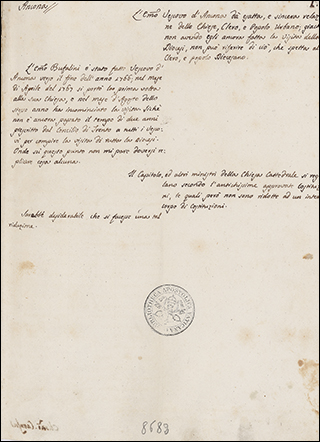 Ancona
L'Emo Vescovo d'Ancona dà esatta, e sincera relazio
ne della Chiesa, Clero, e Popolo Urbano; giacchè
non avendo egli ancora fatta la Visita della
Diocesi, non può riferire di ciò, che spetta al
Clero, e popolo Diocesano.
L'Emo Bufalini è stato fatto Vescovo d'
Ancona verso il fine dell'anno 1766, nel mese
di Aprile del 1767 si portò la prima volta
alla sua Chiesa, e nel mese d'Agosto dello
stesso anno ha incominciato la visita. Sicché
non è ancora passato il tempo di due anni
prescritto dal Concilio di Trento a tutti i Vesco
vi per compire la visita di tutta la Diocesi.
Onde su questo punto non mi pare doversi re
plicare cosa alcuna.
Il Capitolo, ed altri ministri della Chiesa Cattedrale si re
golano secondo l'antichissime approvate Costituzio
ni, le quali però non sono ridotte ad un intero
corpo di Costituzioni.
Sarebbe desiderabile che si facesse una tal
riduzione.
BIBLIOTHECA APOSTOLICA VATICANA
8683